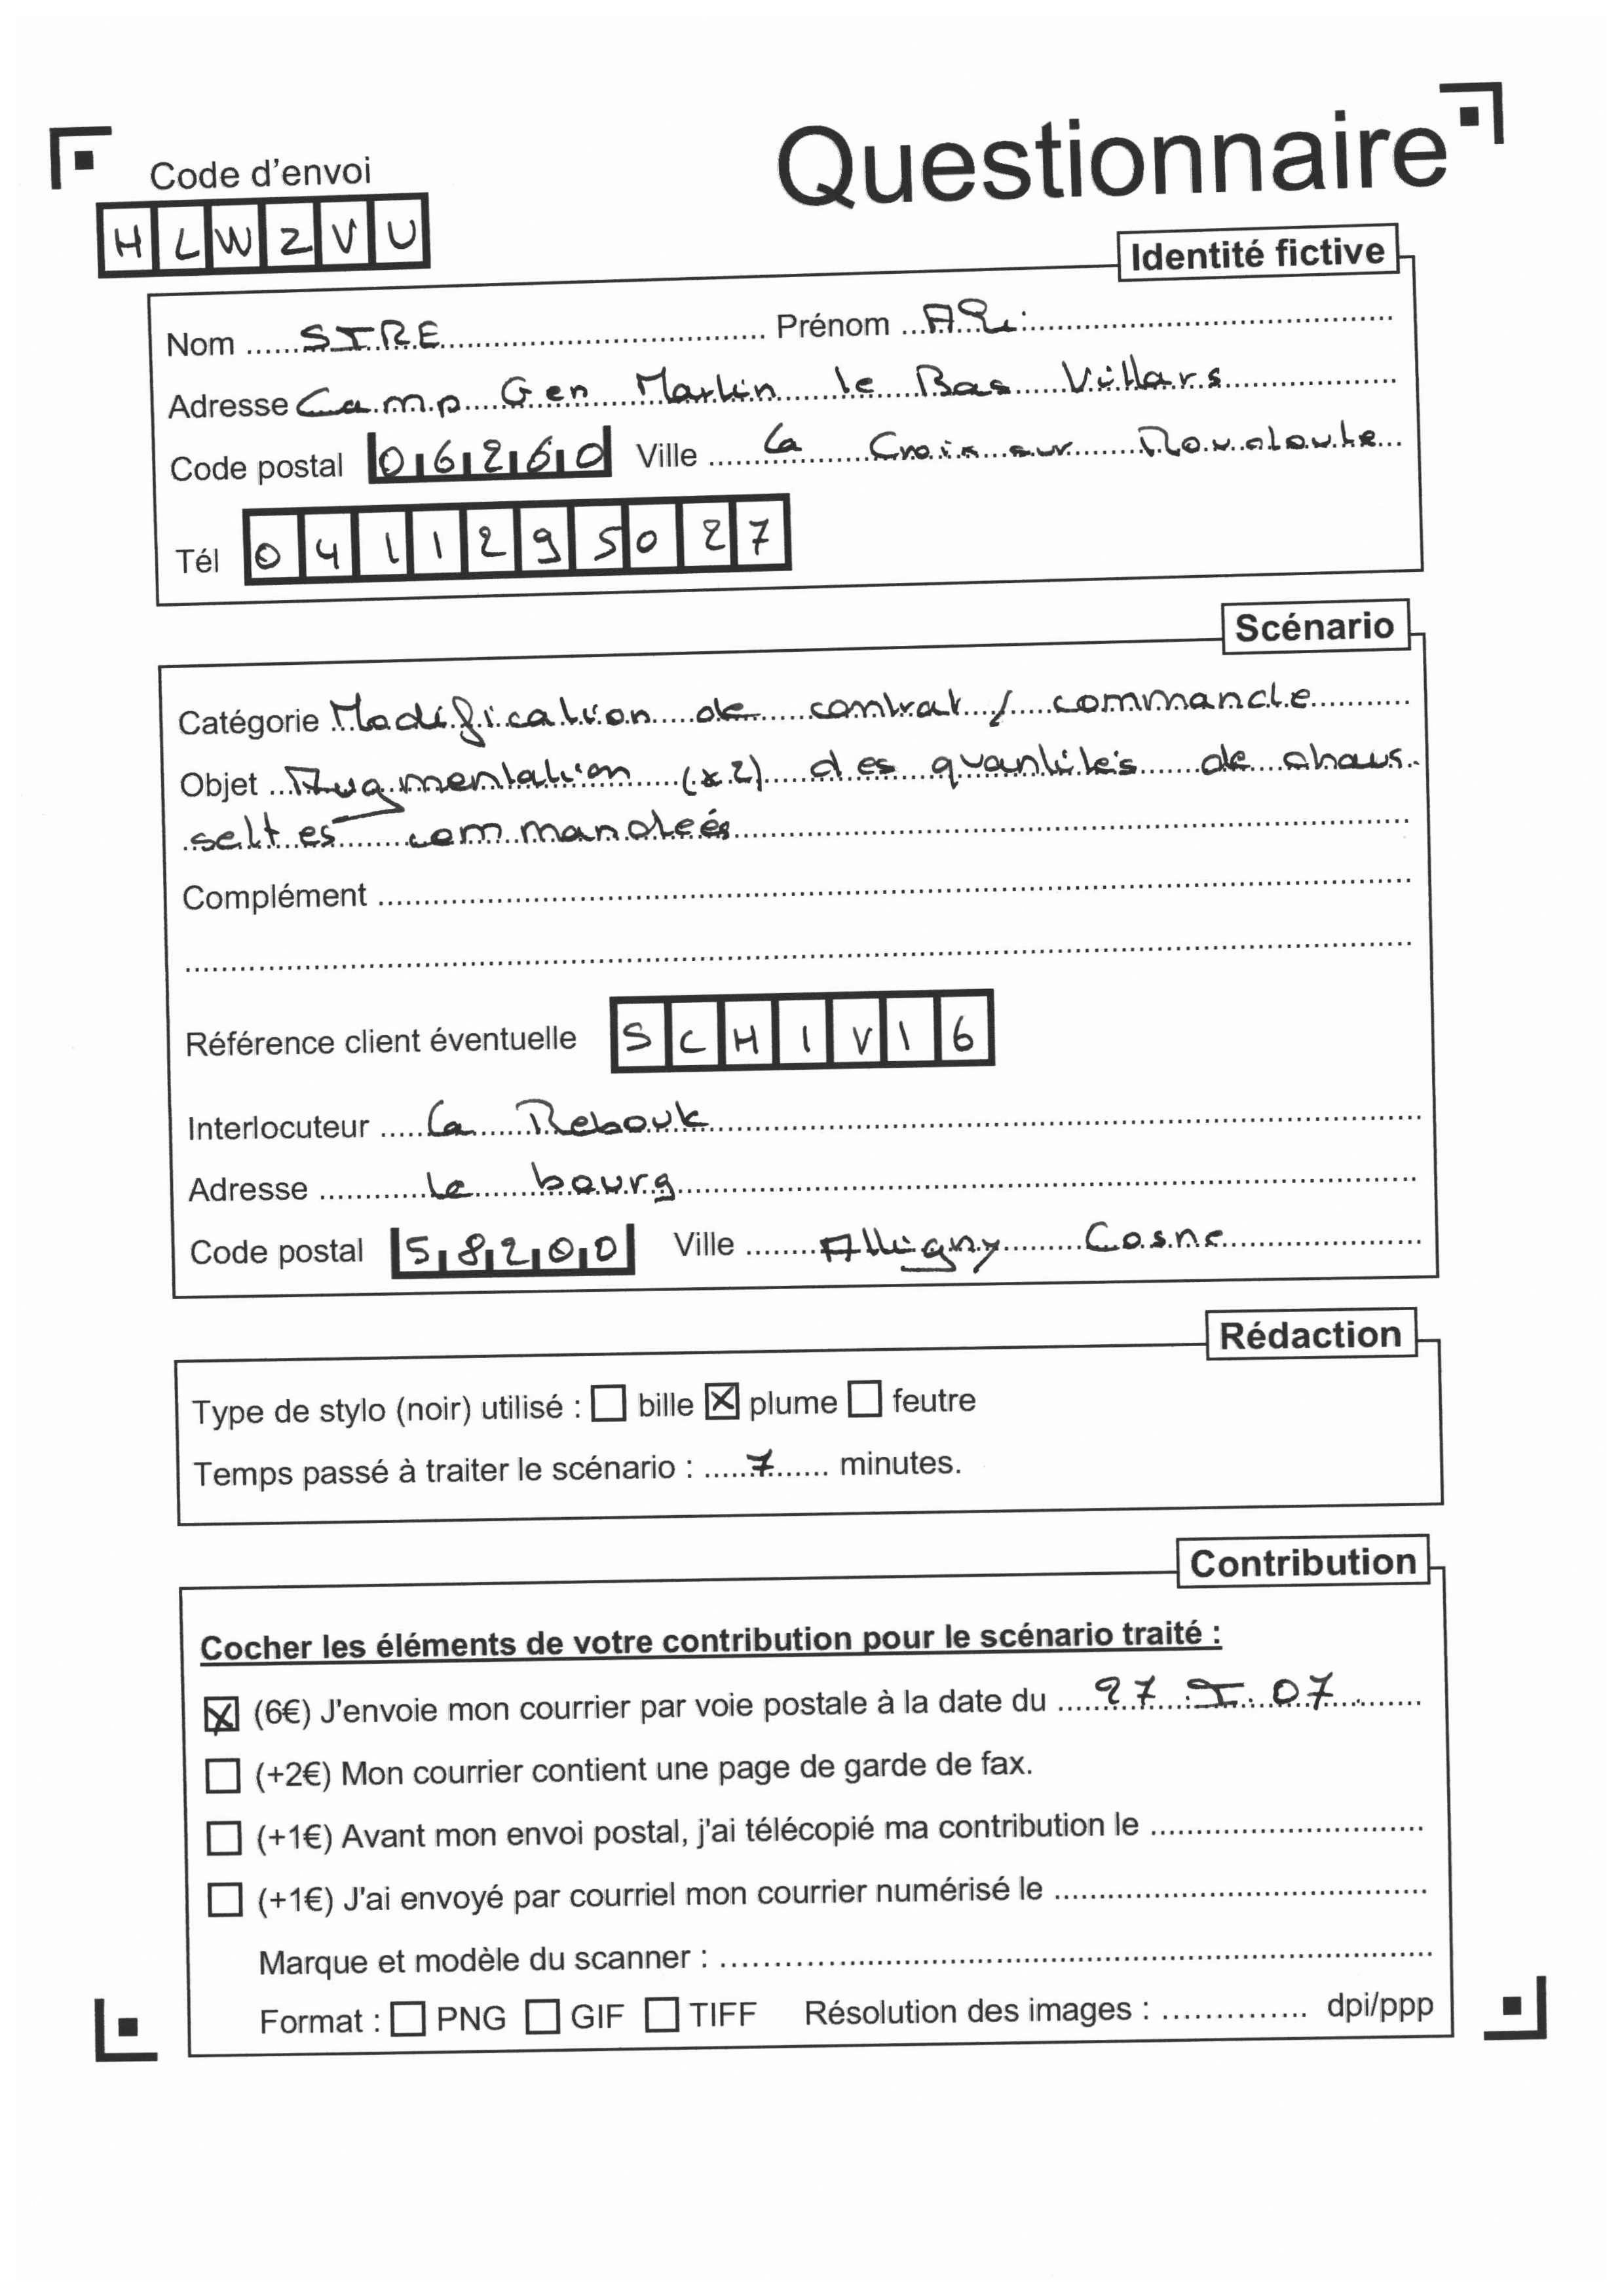 Questionnaire
Code d'envoi
H L W Z V U
Identité fictive
Nom SIRE Prénom Ali
Adresse Camp Gen Martin le Bas Villars
Code postal 06260 Ville La Croix sur Roudoule
Tél 0411295027
Scénario
Catégorie Modification de contrat / commande
Objet Augmentation (x2) des quantités de chaus
settes commandées
Complément
Référence client éventuelle SCHIVI6
Interlocuteur La Reboute
Adresse le bourg
Code postal 58200 Ville Alligny Cosne
Rédaction
Type de stylo (noir) utilisé : bille plume feutre
Temps passé à traiter le scénario : 7 minutes.
Contribution
Cocher les éléments de votre contribution pour le scénario traité :
(6€) J'envoie mon courrier par voie postale à la date du 07
(+2€) Mon courrier contient une page de garde de fax.
(+1€) Avant mon envoi postal, j'ai télécopié ma contribution le
(+1€) J'ai envoyé par courriel mon courrier numérisé le
Marque et modèle du scanner :
Format : PNG GIF TIFF Résolution des images : dpi/ppp